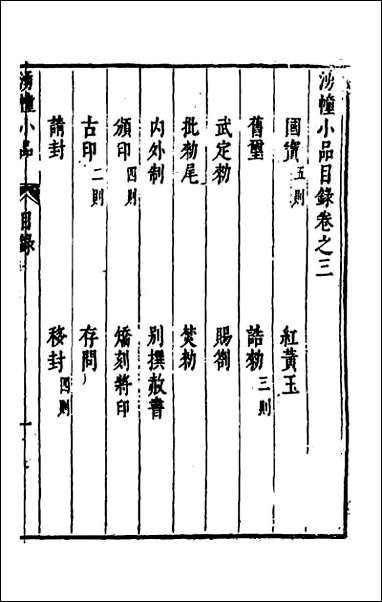 湧幢小品目錄卷之三
國寶五則 紅黃玉
舊璽 誥勑三則
武定勑 賜劄
批勑尾 焚勑
內外制 別撰赦書
頒印四則 矯刻將印
古印二則 存問
請封 移封四則
湧幢小品 目錄